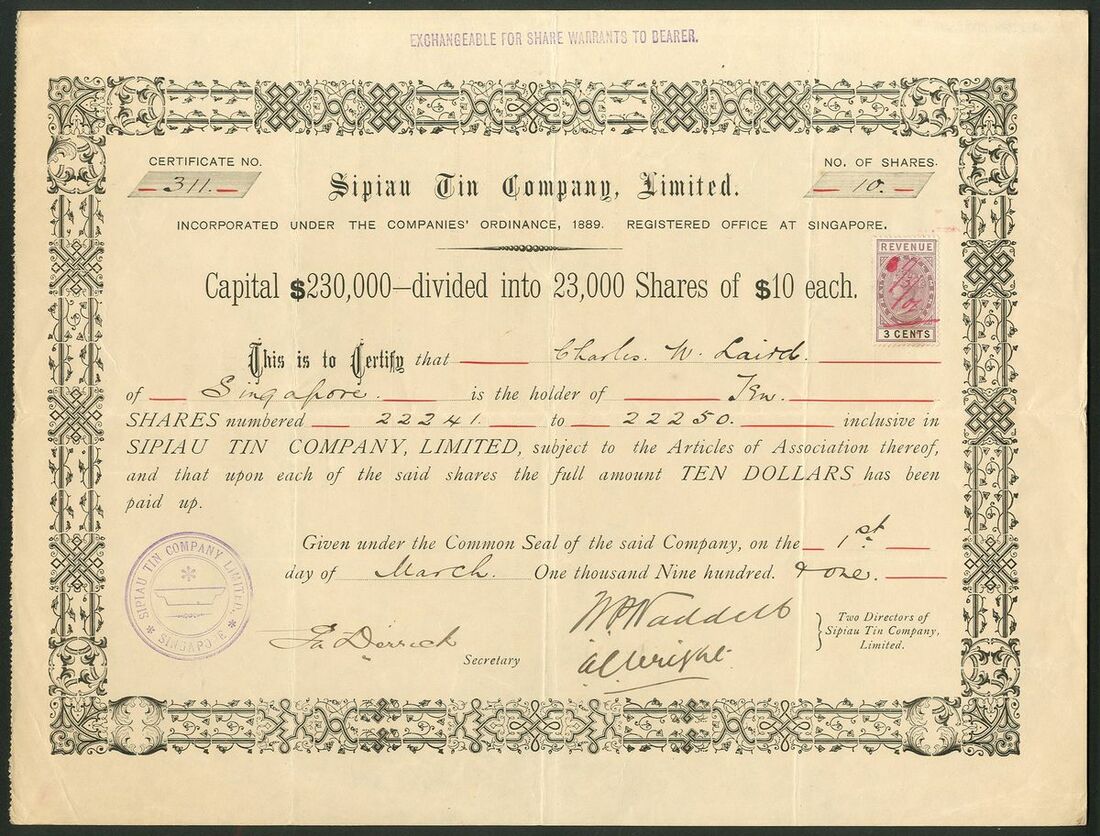 EXCHANGEABLE FOR SHARE WARRANTS TO BEARER.
CERTIFICATE NO.
311.
NO. OF SHARES.
10.
Sipiau Tin Company, Limited.
INCORPORATED UNDER THE COMPANIES' ORDINANCE, 1889. REGISTERED OFFICE AT SINGAPORE.
REVENUE
3 CENTS
Capital $230,000—divided into 23,000 Shares of $10 each.
This is to Certify that Charles. W. Laird.
of Singapore. is the holder of Ten.
SHARES numbered 22241. to 22250. inclusive in
SIPIAU TIN COMPANY, LIMITED, subject to the Articles of Association thereof,
and that upon each of the said shares the full amount TEN DOLLARS has been
paid up.
Given under the Common Seal of the said Company, on the 1st.
day of March. One thousand Nine hundred. & one.
SIPIAU TIN COMPANY LIMITED.
SINGAPORE
Derrick
Secretary
W Waddell
A C Wright.
Two Directors of
Sipiau Tin Company,
Limited.